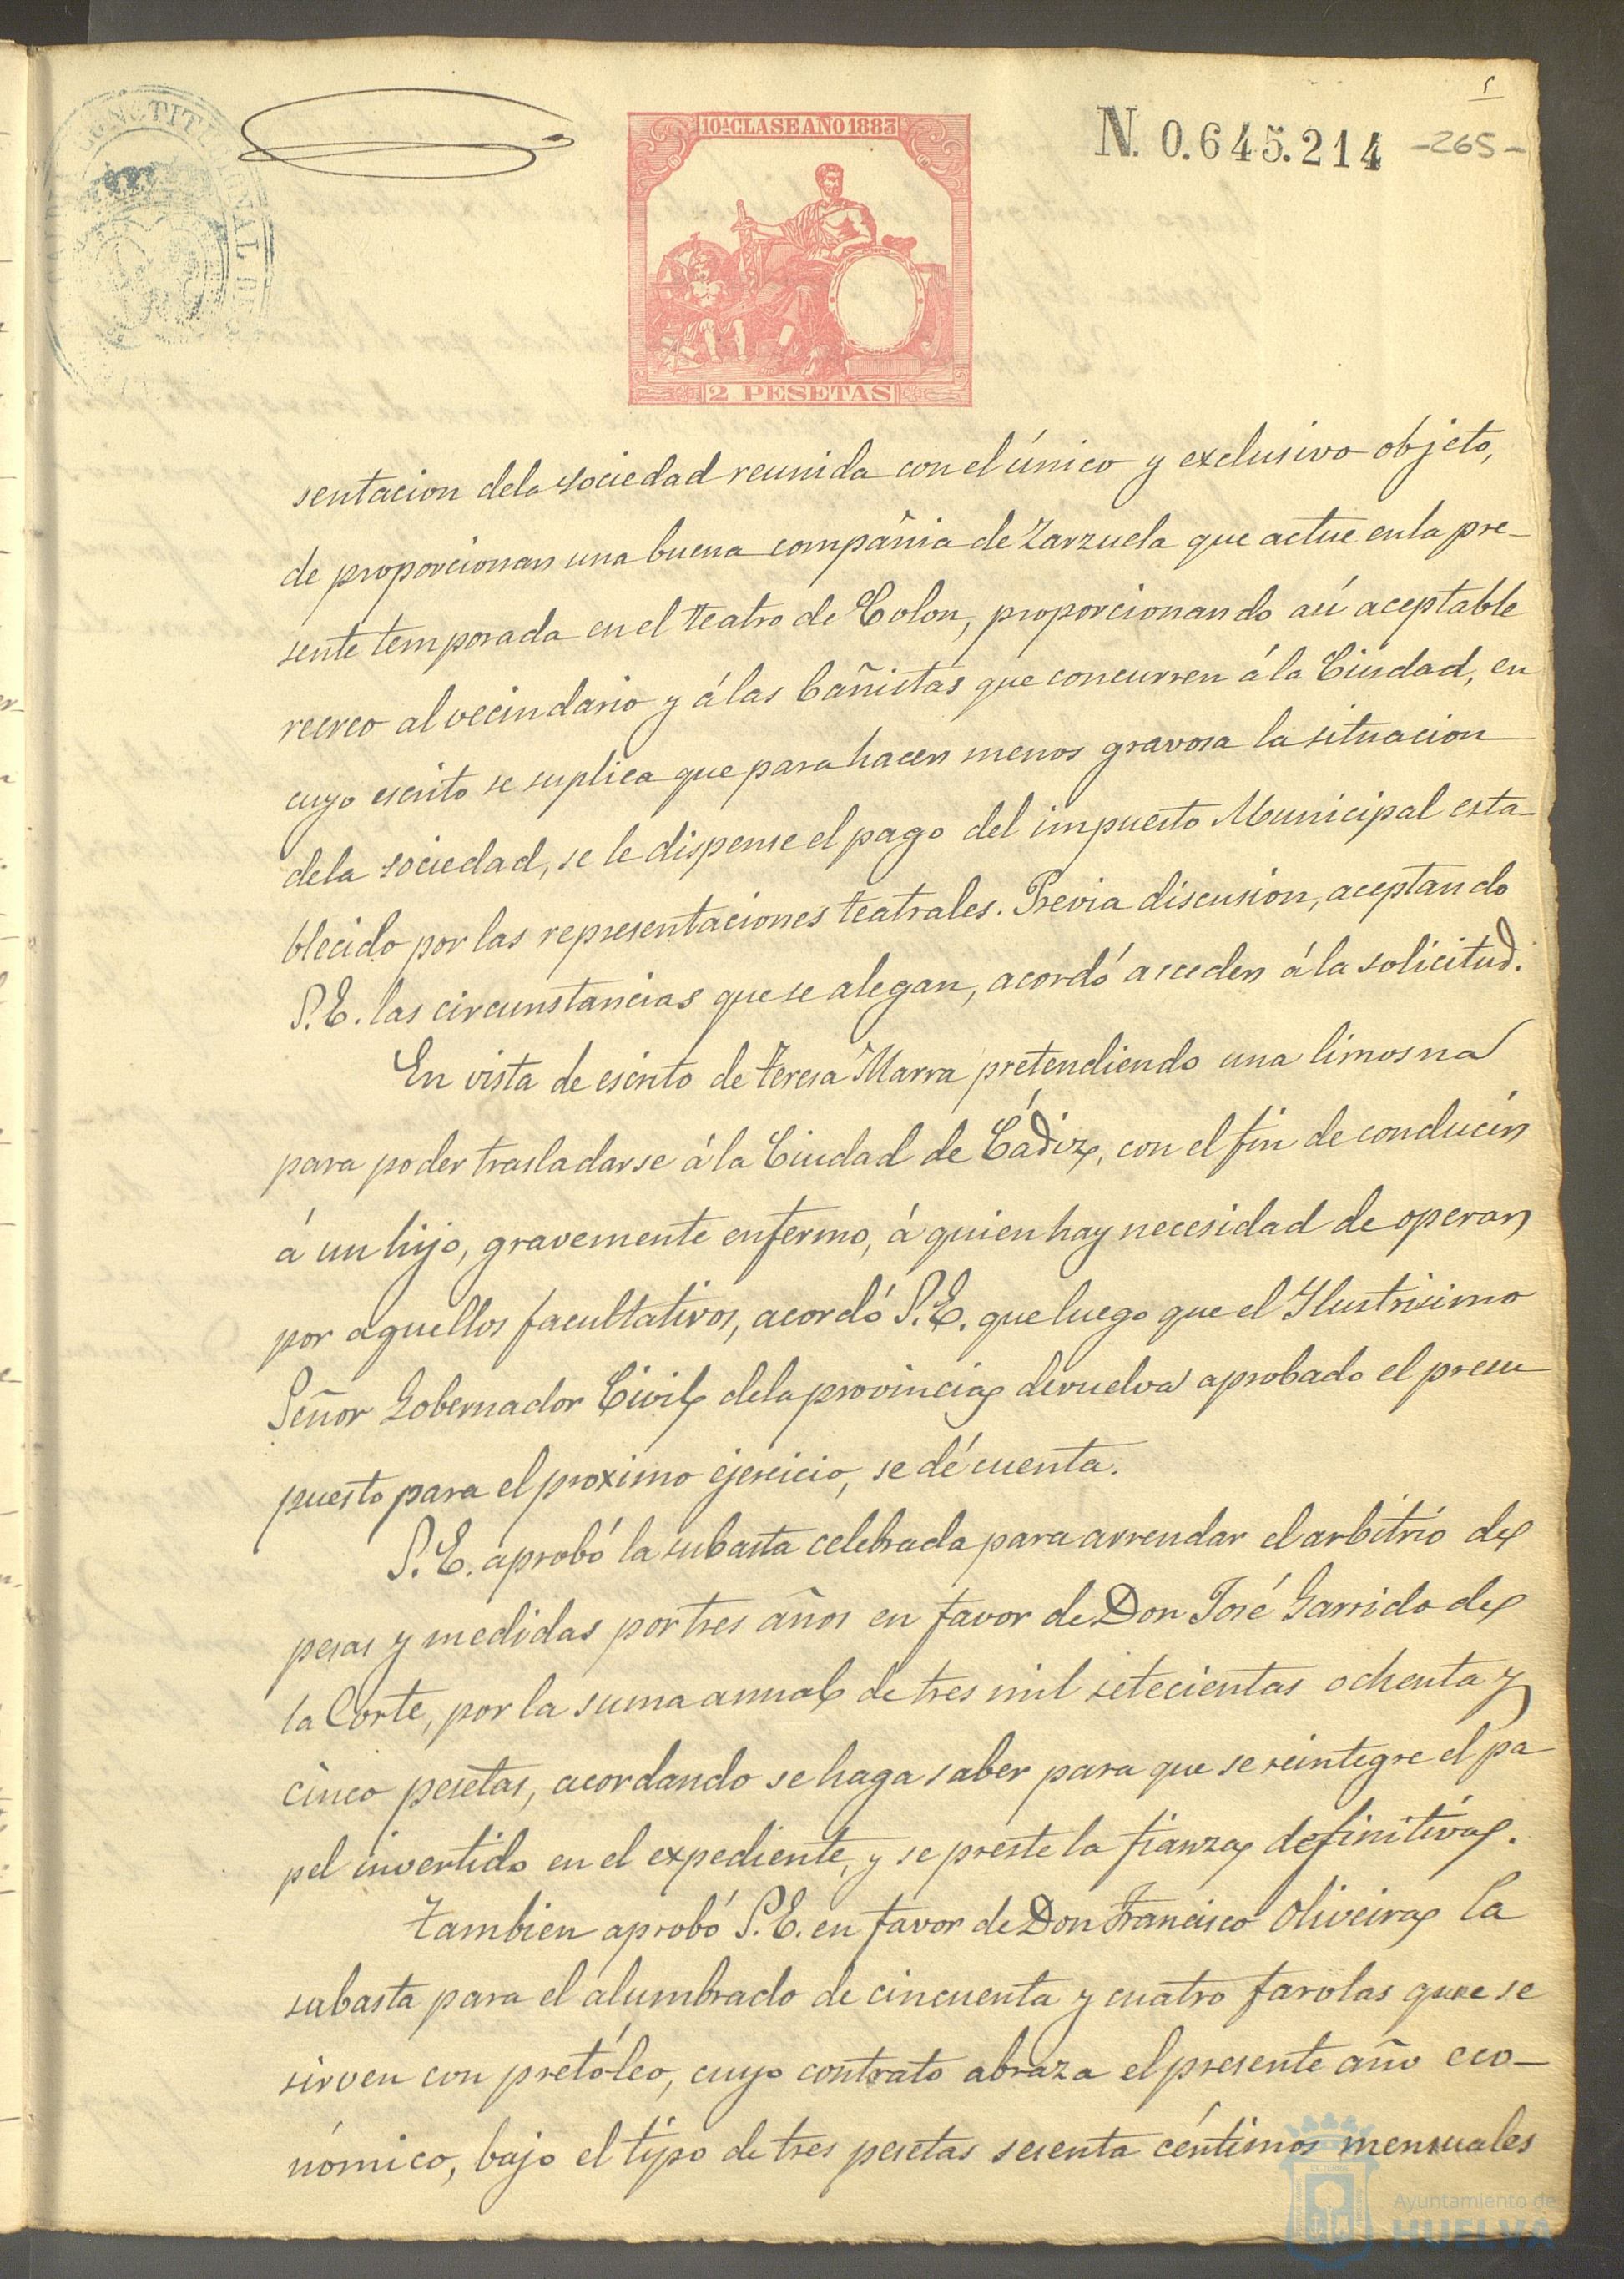 5
CONSTITUCIONAL DE
10ª CLASE AÑO 1883
N. 0.645.214
-265-
2 PESETAS
sentacion dela sociedad reunida con el único y exclusivo objeto,
de proporcionar una buena compañia de Zarzuela que actue en la pre-
sente temporada en el teatro de Colon, proporcionando así aceptable
recreo al vecindario y á las bañistas que concurren á la Ciudad, en
cuyo escrito se suplica que para hacer menos gravosa la situacion
dela sociedad, se le dispense el pago del impuesto Municipal esta-
blecido por las representaciones teatrales. Previa discusion, aceptando
S.E. las circunstancias que se alegan, acordó acceder á la solicitud.
En vista de escrito de Teresa Marra pretendiendo una limosna
para poder trasladarse á la Ciudad de Cádiz, con el fin de conducir
á un hijo, gravemente enfermo, á quien hay necesidad de operar
por aquellos facultativos, acordó S.E. que luego que el Ilustrisimo
Señor Gobernador Civil dela provincia devuelva aprobado el presu
puesto para el proximo ejercicio, se dé cuenta.
S.E. aprobó la subasta celebrada para arrendar el arbitrio de
pesas y medidas por tres años en favor de Don José Garrido de
la Corte, por la suma annal de tres mil setecientas ochenta y
cinco pesetas, acordando se haga saber para que se reintegre el pa
pel invertido en el expediente, y se preste la fianza definitiva.
Tambien aprobó S.E. en favor de Don Francisco Oliveira la
subasta para el alumbrado de cincuenta y cuatro farolas que se
sirven con pretóleo, cuyo contrato abraza el presente año eco-
nómico, bajo el tipo de tres pesetas sesenta céntimos mensuales
Ayuntamiento de
HUELVA